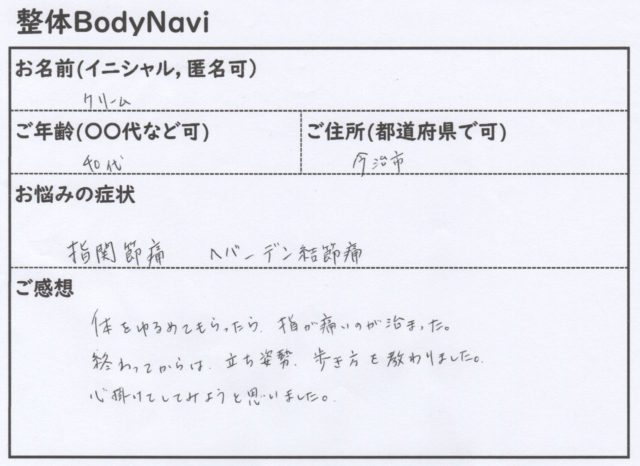 整体BodyNavi
お名前(イニシャル,匿名可)
クリーム
ご年齢(〇〇代など可)
ご住所(都道府県で可)
40代
今治市
お悩みの症状
指関節痛 ヘバーデン結節痛
ご感想
体をゆるめてもらったら、指が痛いのが治まった。
終わってからは、立ち姿勢、歩き方を教わりました。
心掛けてしてみようと思いました。